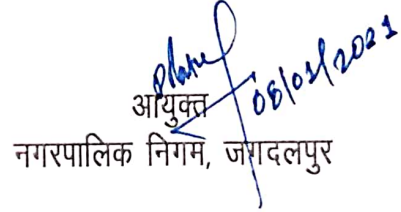 08/01/2021
आयुक्त
नगरपालिक निगम, जगदलपुर